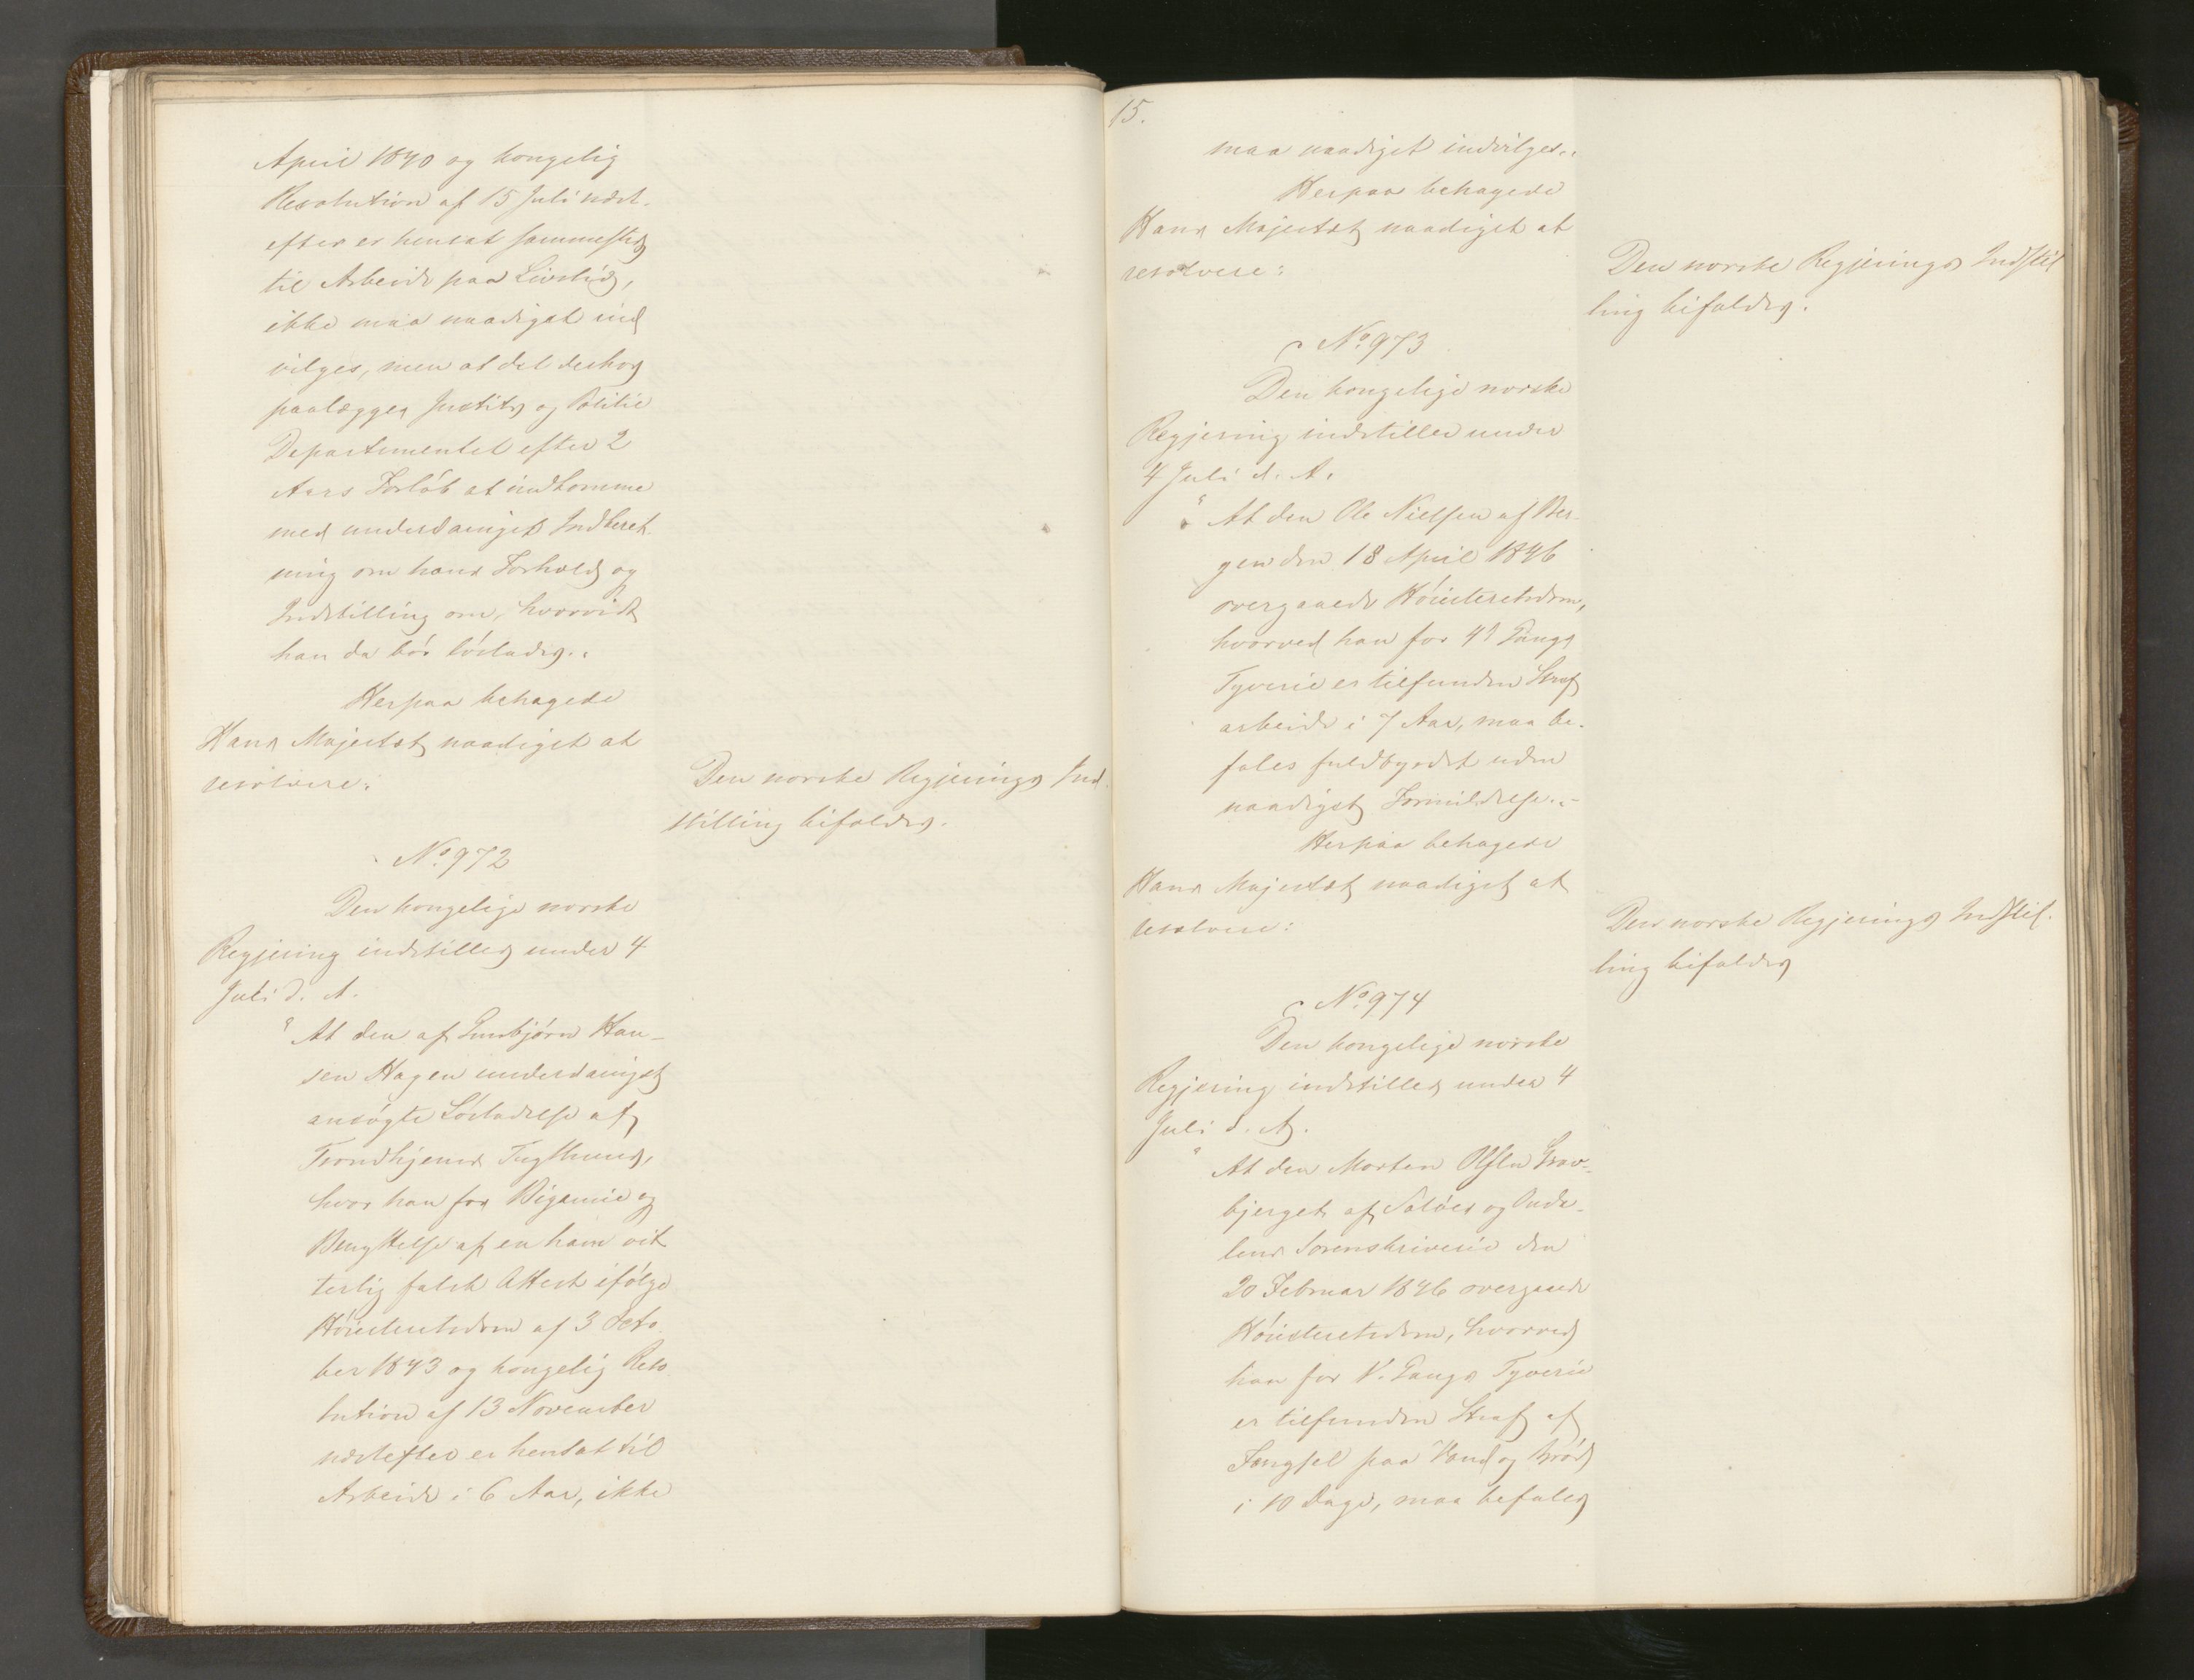 April 1840 og kongelig
Resolution af 15 Juli næst-
efter er hensat sammesteds
til Arbeide paa Livstid,
ikke maa naadigst ind
vilges, men at det deshos
paalægges Justits og Politie
Departementet efter 2
Aars Forløb at indkomme
med underdanigst Indberet
ning om hans Forhold og
Indstilling om, hvorvidt
han da bør løslades."
Herpaa behagede
Hans Majestæt naadigst at
resolvere:
Den norske Regjerings Ind-
stilling bifaldes.
No. 972
Den kongelige norske
Regjering indstiller under 4
Juli d. A.
"At den af Gunbjørn Han-
sen Hagen underdanigst
ansøgte Løsladelse af
Trondhjems Tugthuus,
hvor han for Bigamie og
Benyttelse af en ham vit
terlig falsk Attest ifølge
Høiesteretsdom af 3 Octo
ber 1843 og kongelig Reso
lution af 13 November
næstefter er hensat til
Arbeide i 6 Aar, ikke
15.
maa naadigst indvilges."
Herpaa behagede
Hans Majestæt naadigst at
resolvere:
Den norske Regjerings Indstil
ling bifaldes.
No. 973
Den kongelige norske
Regjering indstiller under
4 Juli d. A.
"At den Ole Nielsen af Ber-
gen den 18 April 1846
overgaaede Høiesteretsdom,
hvorved han for 4de Gangs
Tyverie er tilfunden Straf
arbeide i 7 Aar, maa be-
fales fuldbyrdet uden
naadigst Formildelse."
Herpaa behagede
Hans Majestæt naadigst at
resolvere:
Den norske Regjerings Indstil-
ling bifaldes
No. 974
Den kongelige norske
Regjering indstiller under 4
Juli d. A.
"At den Morten Olsen Grav-
bjerget af Soløer og Oude-
lens Sorenskriverie den
20 Februar 1846 overgaaede
Høiesteretsdom, hvorved
han for V. Gangs Tyverie
er tilfunden Straf af
Fængsel paa Vand og Brød
i 10 Dage, maa befales